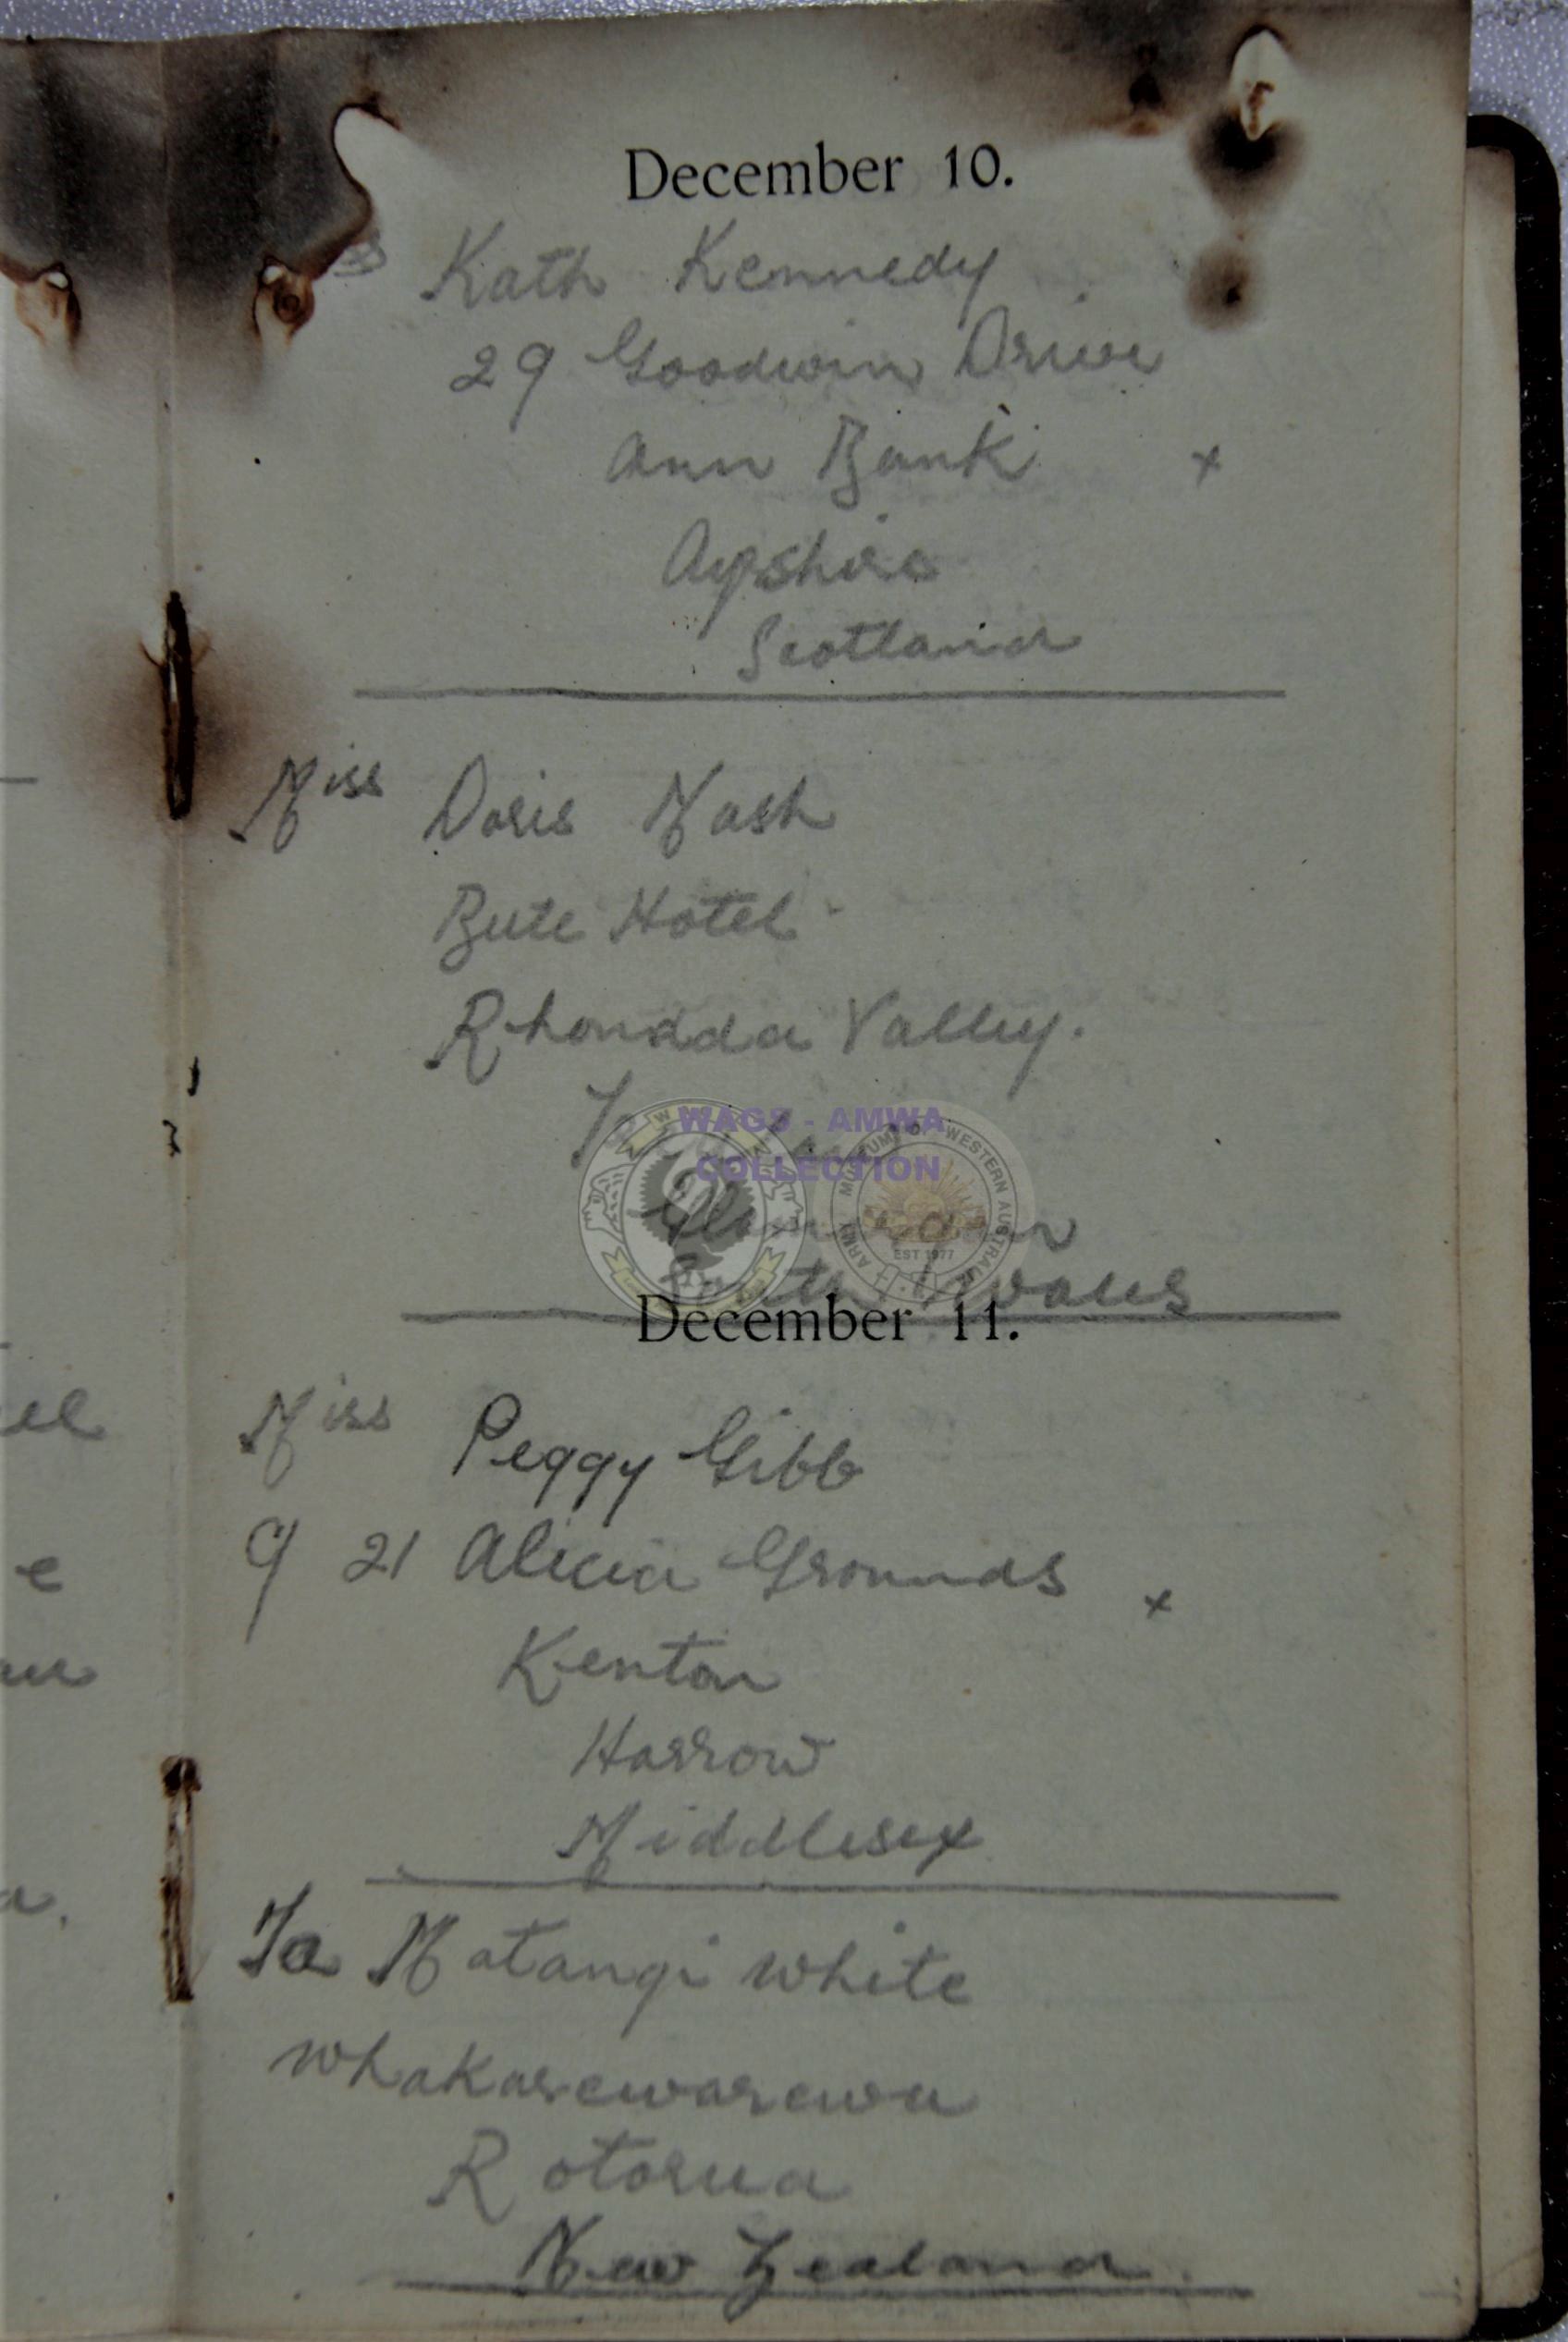 December 10.
Kath Kennedy
29 Goodwin Drive
Ann Bank x
Ayrshire
Scotland
Miss Doris Nash
Bute Hotel
Rhondda Valley.
WAGS - AMWA
COLLECTION
ARMY MUSEUM OF WESTERN AUSTRALIA
EST 1977
South Wales
December 11.
Miss Peggy Gibb
9 21 Alicia Grounds x
Kenton
Harrow
Middlesex
Ta Matangi White
Whakarewarewa
Rotorua
New Zealand.